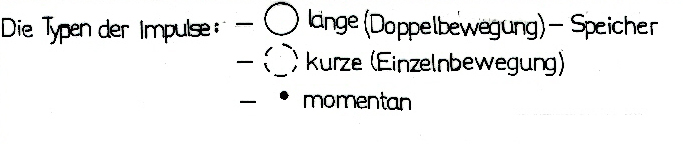 Die Typen der Impulse: – ◯ lange (Doppelbewegung) – Speicher
– ◌ kurze (Einzelnbewegung)
– • momentan